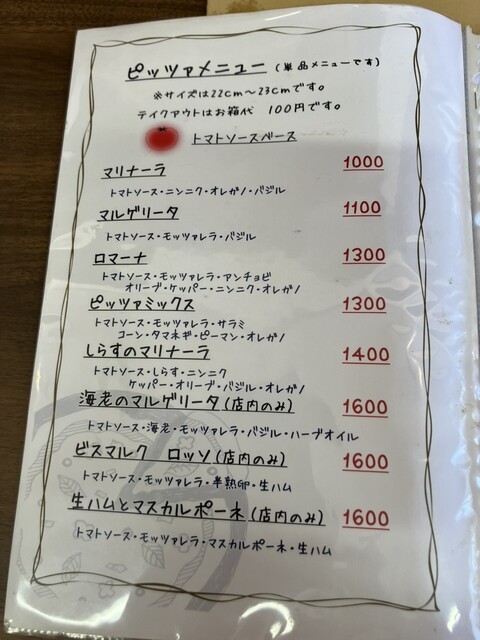 ピッツァメニュー (単品メニューです)
※サイズは22cm〜23cmです。
テイクアウトはお箱代 100円です。
トマトソースベース
マリナーラ 1000
トマトソース・ニンニク・オレガノ・バジル
マルゲリータ 1100
トマトソース・モッツァレラ・バジル
ロマーナ 1300
トマトソース・モッツァレラ・アンチョビ
オリーブ・ケッパー・ニンニク・オレガノ
ピッツァミックス 1300
トマトソース・モッツァレラ・サラミ
コーン・タマネギ・ピーマン・オレガノ
しらすのマリナーラ 1400
トマトソース・しらす・ニンニク
ケッパー・オリーブ・バジル・オレガノ
海老のマルゲリータ(店内のみ) 1600
トマトソース・海老・モッツァレラ・バジル・ハーブオイル
ビスマルク ロッソ(店内のみ) 1600
トマトソース・モッツァレラ・半熟卵・生ハム
生ハムとマスカルポーネ(店内のみ) 1600
トマトソース・モッツァレラ・マスカルポーネ・生ハム